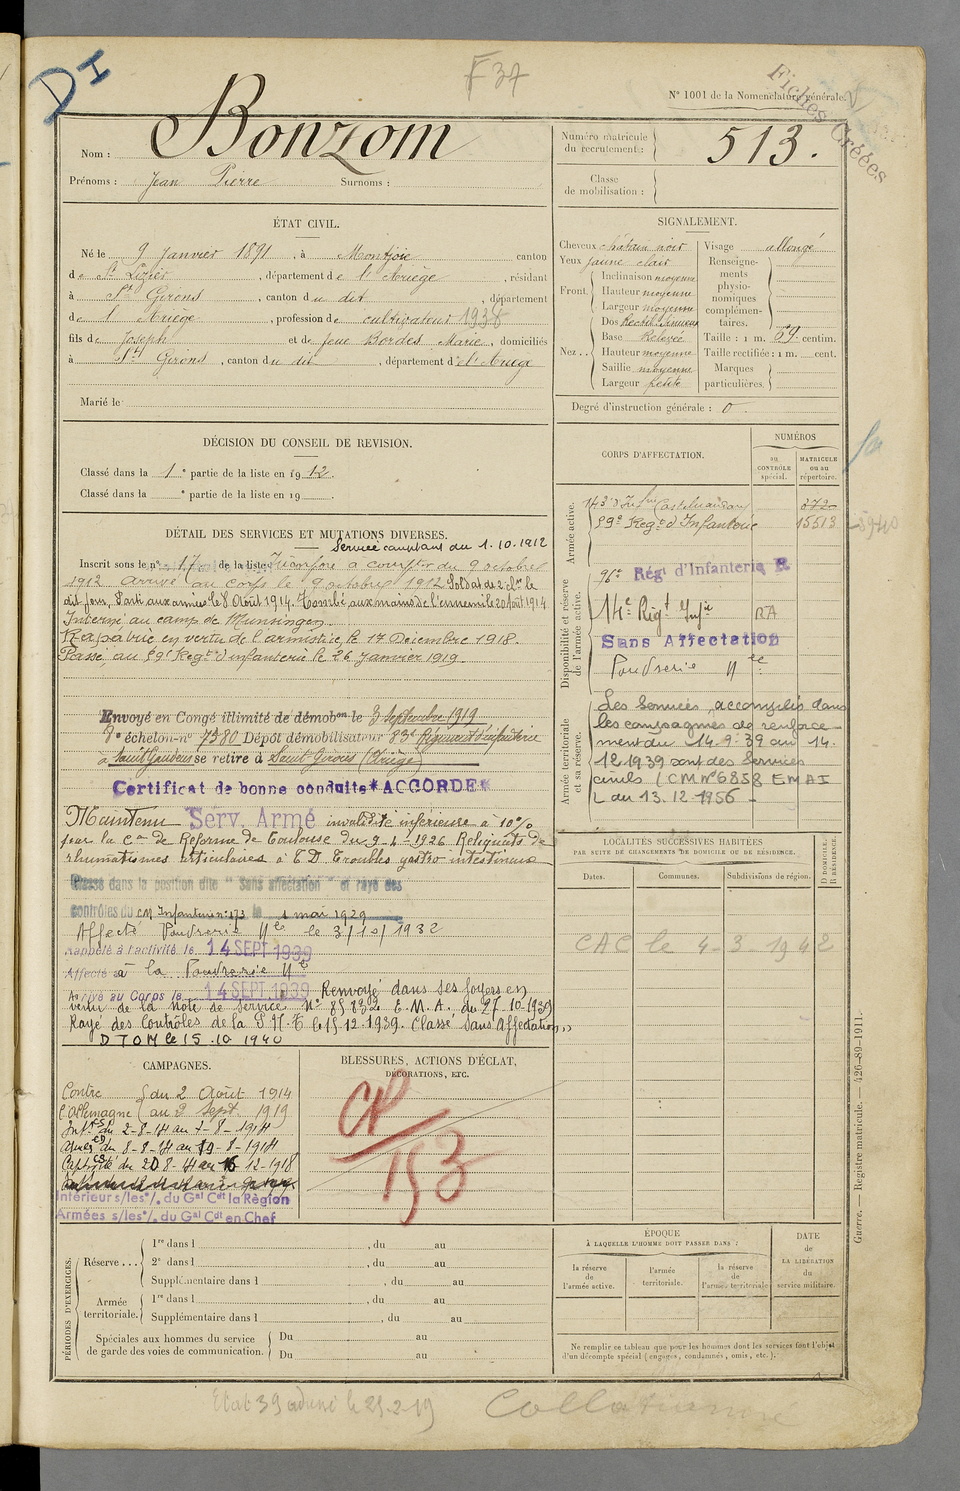 D I
F 37
N° 1001 de la Nomenclature générale.
Fiches Créées
Nom : Bonzom
Prénoms : Jean Pierre Surnoms :
Numéro matricule du recrutement : 513.
Classe de mobilisation :
ÉTAT CIVIL.
Né le 9 Janvier 1891, à Montjoie canton
de St Lizier, département de l'Ariège, résidant
à St Girons, canton du dit, département
de l'Ariège, profession de cultivateur 1938
fils de Joseph et de feue Bordes Marie, domiciliés
à St Girons, canton du dit, département de l'Ariège
Marié le
SIGNALEMENT.
Cheveux châtain noir Visage allongé
Yeux jaune clair Renseigne-
Front. Inclinaison moyenne ments
Hauteur moyenne physio-
Largeur moyenne nomiques
Nez.. Dos Rectil. Sinueux complémen-
Base Relevée taires.
Hauteur moyenne Taille : 1 m. 69 centim.
Saillie moyenne Taille rectifiée : 1 m. cent.
Largeur petite Marques particulières.
Degré d'instruction générale : 0.
DÉCISION DU CONSEIL DE REVISION.
Classé dans la 1e partie de la liste en 1912.
Classé dans la e partie de la liste en 19 .
CORPS D'AFFECTATION.
NUMÉROS
au CONTRÔLE spécial.
MATRICULE ou au répertoire.
Armée active.
143e d'Infrie Castelnaudary 372
59e Regt d'Infanterie 15513
Disponibilité et réserve de l'armée active.
96e Régt d'Infanterie R
14e Régt Infie RA
Sans Affectation
Poudrerie Nle
Armée territoriale et sa réserve.
Les Services accomplis dans
les campagnes de renforce-
ment du 14.9.39 au 14.
12.1939 sont des Services
civils (CM N° 6858 EMAI
L du 13.12.1956 -
DÉTAIL DES SERVICES ET MUTATIONS DIVERSES.
Service comptant du 1.10.1912
Inscrit sous le n° 17 de la liste. Incorporé à compter du 9 octobre
1912 arrivé au corps le 9 octobre 1912 Soldat de 2e cl. le
dit jour. Parti aux armées le 8 Août 1914. Tombé aux mains de l'ennemi le 20 Août 1914
Interné au camp de Munsingen.
Rapatrié en vertu de l'armistice, le 17 Décembre 1918.
Passé au 59e Regt d'infanterie le 26 Janvier 1919.
Envoyé en Congé illimité de démobon le 3 Septembre 1919
8e échelon-n° 7580 Dépôt démobilisateur 83e Régiment d'infanterie
à Saint Gaudens se retire à Saint Girons (Ariège)
Certificat de bonne conduite *ACCORDE*
Maintenu Serv. Armé invalidité inférieure à 10%
par la Con de Réforme de Toulouse du 9-4-1926 Reliquats de
rhumatismes articulaires à E D Troubles gastro intestinaux
Classé dans la position dite "Sans affectation" et rayé des
contrôles du CM Infanterie n° 173 le 1 mai 1929
Affecté Poudrerie Nle le 3/10/1932
Rappelé à l'activité le 14 SEPT 1939
Affecté à la Poudrerie Nle
Arrivé au Corps le 14 SEPT 1939 Renvoyé dans ses foyers en
vertu de la note de Service N° 85132 E.M.A. du 27.10.1939
Rayé des Contrôles de la P.N.T le 15.12.1939. Classé "Sans Affectation"
DTOM le 15.10 1940
LOCALITÉS SUCCESSIVES HABITÉES
PAR SUITE DE CHANGEMENTS DE DOMICILE OU DE RÉSIDENCE.
Dates. Communes. Subdivisions de région. D DOMICILE. R RÉSIDENCE.
CAC le 4-3-1942
CAMPAGNES.
Contre l'Allemagne { du 2 Août 1914
au 2 Sept. 1919
Intr du 2-8-14 au 7-8-1914
Armées du 8-8-14 au 19-8-1914
Captivité du 20 8-14 au 16-12-1918
Intérieur s/les%. du Gal Cdt la Région
Armées s/les%. du Gal Cdt en Chef
BLESSURES, ACTIONS D'ÉCLAT,
DÉCORATIONS, ETC.
CP
153
PÉRIODES D'EXERCICES.
Réserve... 1re dans l , du au
2e dans l , du au
Supplémentaire dans l , du au
Armée territoriale. 1re dans l , du au
Supplémentaire dans l , du au
Spéciales aux hommes du service Du au
de garde des voies de communication. Du au
ÉPOQUE
À LAQUELLE L'HOMME DOIT PASSER DANS :
la réserve de l'armée active.
l'armée territoriale.
la réserve de l'armée territoriale
DATE de LA LIBÉRATION du service militaire.
Ne remplir ce tableau que pour les hommes dont les services font l'objet
d'un décompte spécial (engagés, condamnés, omis, etc.).
Guerre. — Registre matricule. — 426-89-1911.
Collationné